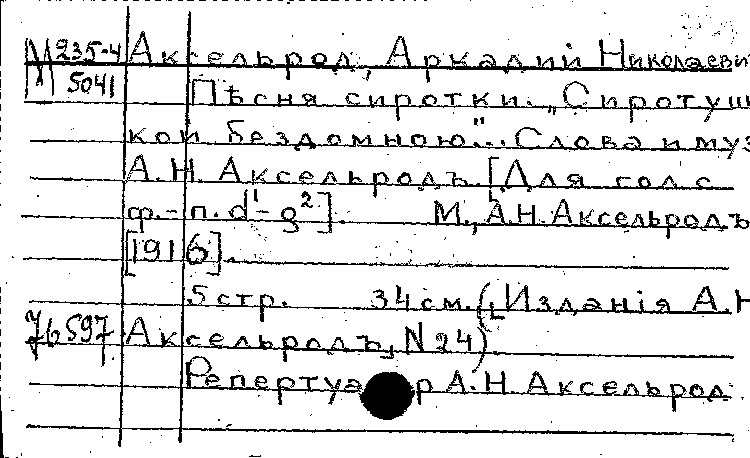 М 235-4 Аксельрод, Аркадий Николаеви
5041 Пѣсня сиротки. „Сиротуш
кой бездомною"... Слова и муз
А.Н. Аксельродъ. [Для гол с
ф.-п. d¹-g²]. М., А.Н. Аксельродъ
[1916].
5 стр. 34 см. („Изданія А.Н
76597 Аксельродъ„ N 24)
Репертуар А.Н. Аксельрод